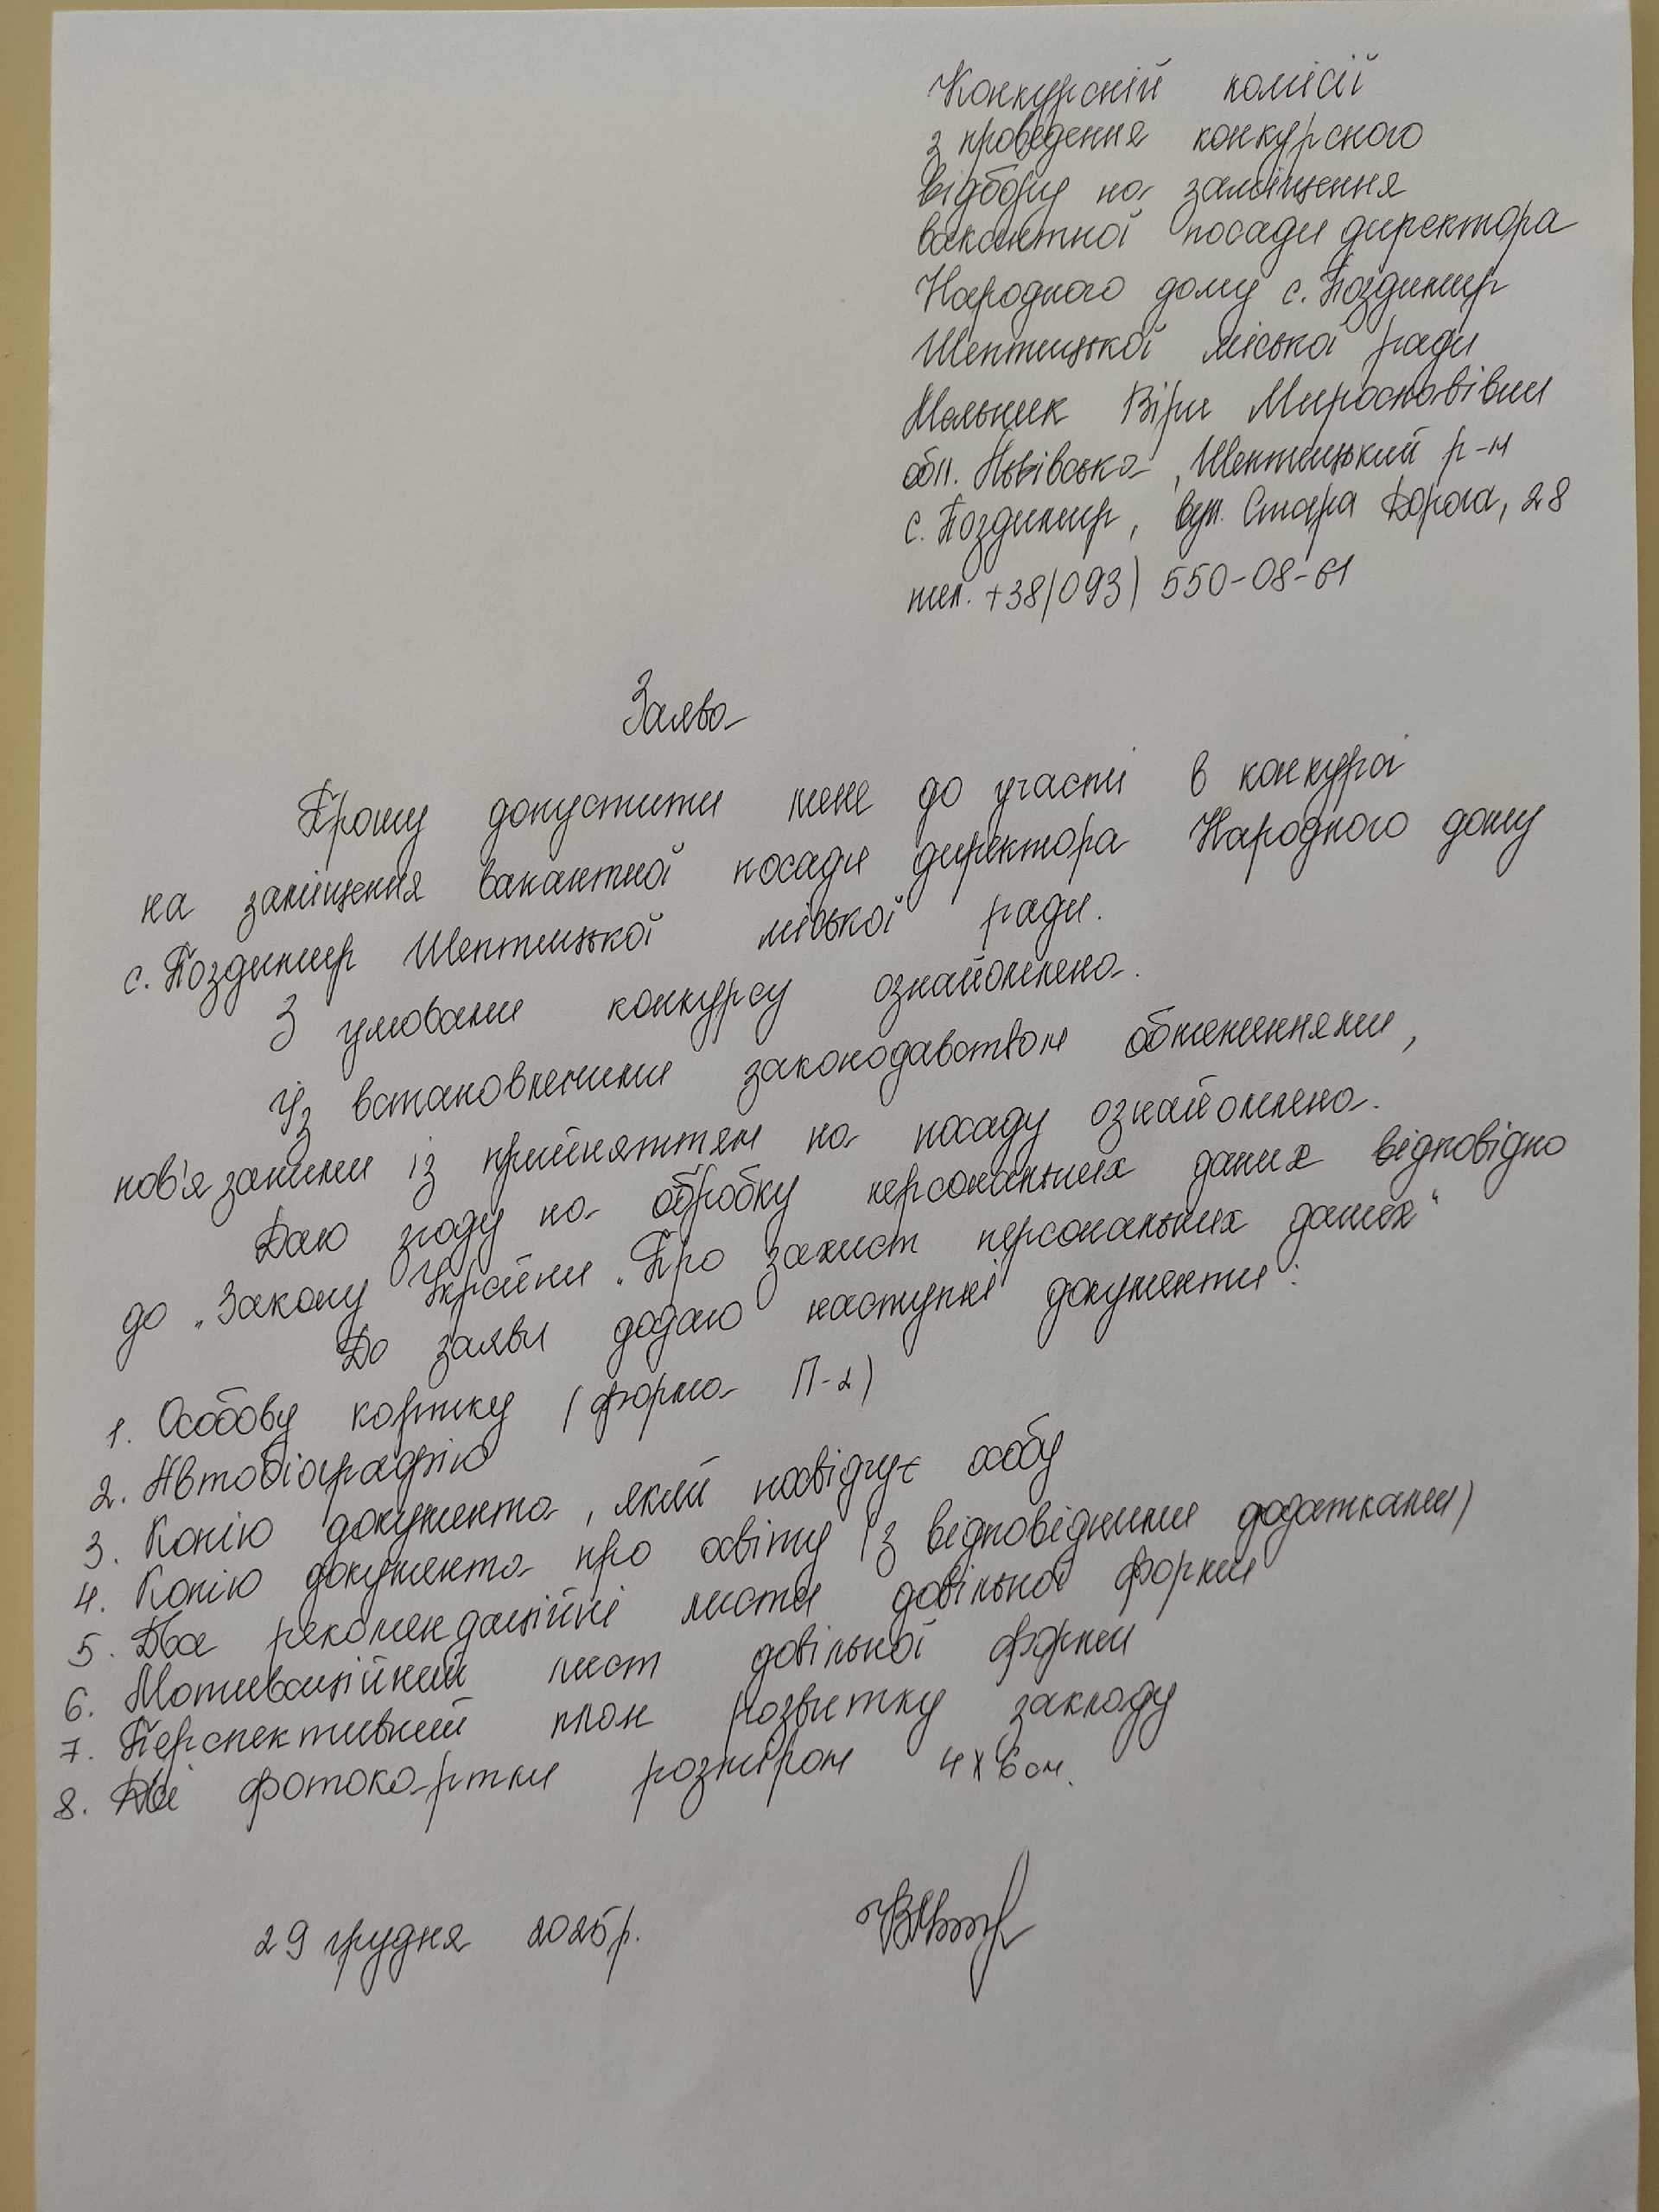 Конкурсній комісії
з проведення конкурсного
відбору на заміщення
вакантної посади директора
Народного дому с. Поздимир
Шептицької міської ради
Мельник Віри Мирославівни
обл. Львівська, Шептицький р-н
с. Поздимир, вул. Стара Дорога, 28
тел. +38(093) 550-08-61
Заява
Прошу допустити мене до участі в конкурсі
на заміщення вакантної посади директора Народного дому
с. Поздимир Шептицької міської ради.
З умовами конкурсу ознайомлена.
Із встановленими законодавством обмеженнями,
пов'язаними із прийняттям на посаду ознайомлена.
Даю згоду на обробку персональних даних відповідно
до „Закону України „Про захист персональних даних“
До заяви додаю наступні документи:
1. Особову картку (форма П-2)
2. Автобіографію
3. Копію документа, який посвідчує особу
4. Копію документа про освіту (з відповідними додатками)
5. Два рекомендаційні листи довільної форми
6. Мотиваційний лист довільної форми
7. Перспективний план розвитку закладу
8. Дві фотокартки розміром 4х6 см.
29 грудня 2025 р.